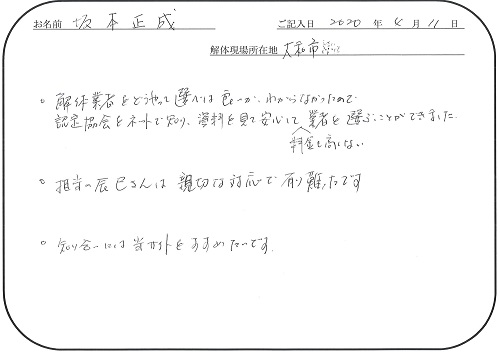 お名前 坂本正成 ご記入日 2020 年 4 月 11 日
解体現場所在地 大和市
。解体業者をどうやって選べば良いか、わからなかったので
認定協会をネットで知り、資料を見て安心して業者を選ぶことができました。
料金も高くない
。担当の辰巳さんは親切な対応で有り難たです
。知り合いには当サイトをすすめたいです。